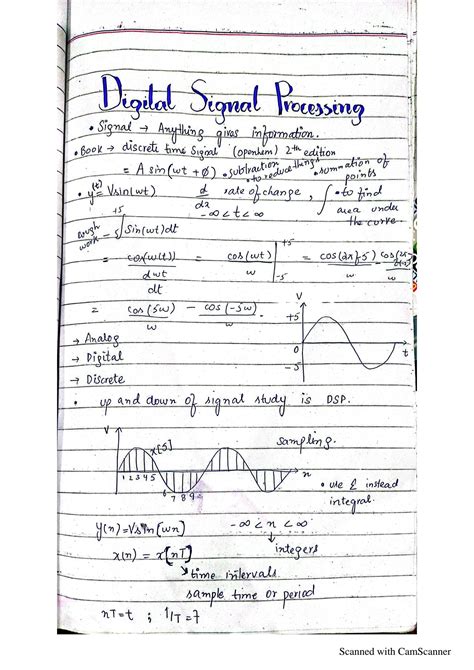 Digital Signal Processing
• Signal → Anything gives information.
• Book → discrete time Signal (openhem) 2th edition
= A sin(wt + ϕ) • subtraction • summation of
• to reduce things points
• y(t) = Vsin(wt) d/dx rate of change, ∫ • to find
-∞ < t < ∞ area under
the curve.
rough work - +5 ∫ Sin(wt)dt
= cos(w(t)) / (d wt / dt) = cos(wt) / w | +5 -5 = cos(2π f 5)
= cos(5w) / w - cos(-5w) / w .
V
+5
0
-5
t
→ Analog
→ Digital
→ Discrete
• up and down of signal study is DSP.
V
x[5]
sampling.
1 2 3 4 5
6 7 8 9
n
• use Σ instead
integral.
y(n)=Vsin(wn) -∞ < n < ∞
integers
x(n) = x[nT]
time intervals
sample time or period
nT=t ; 1/T=7
Scanned with CamScanner